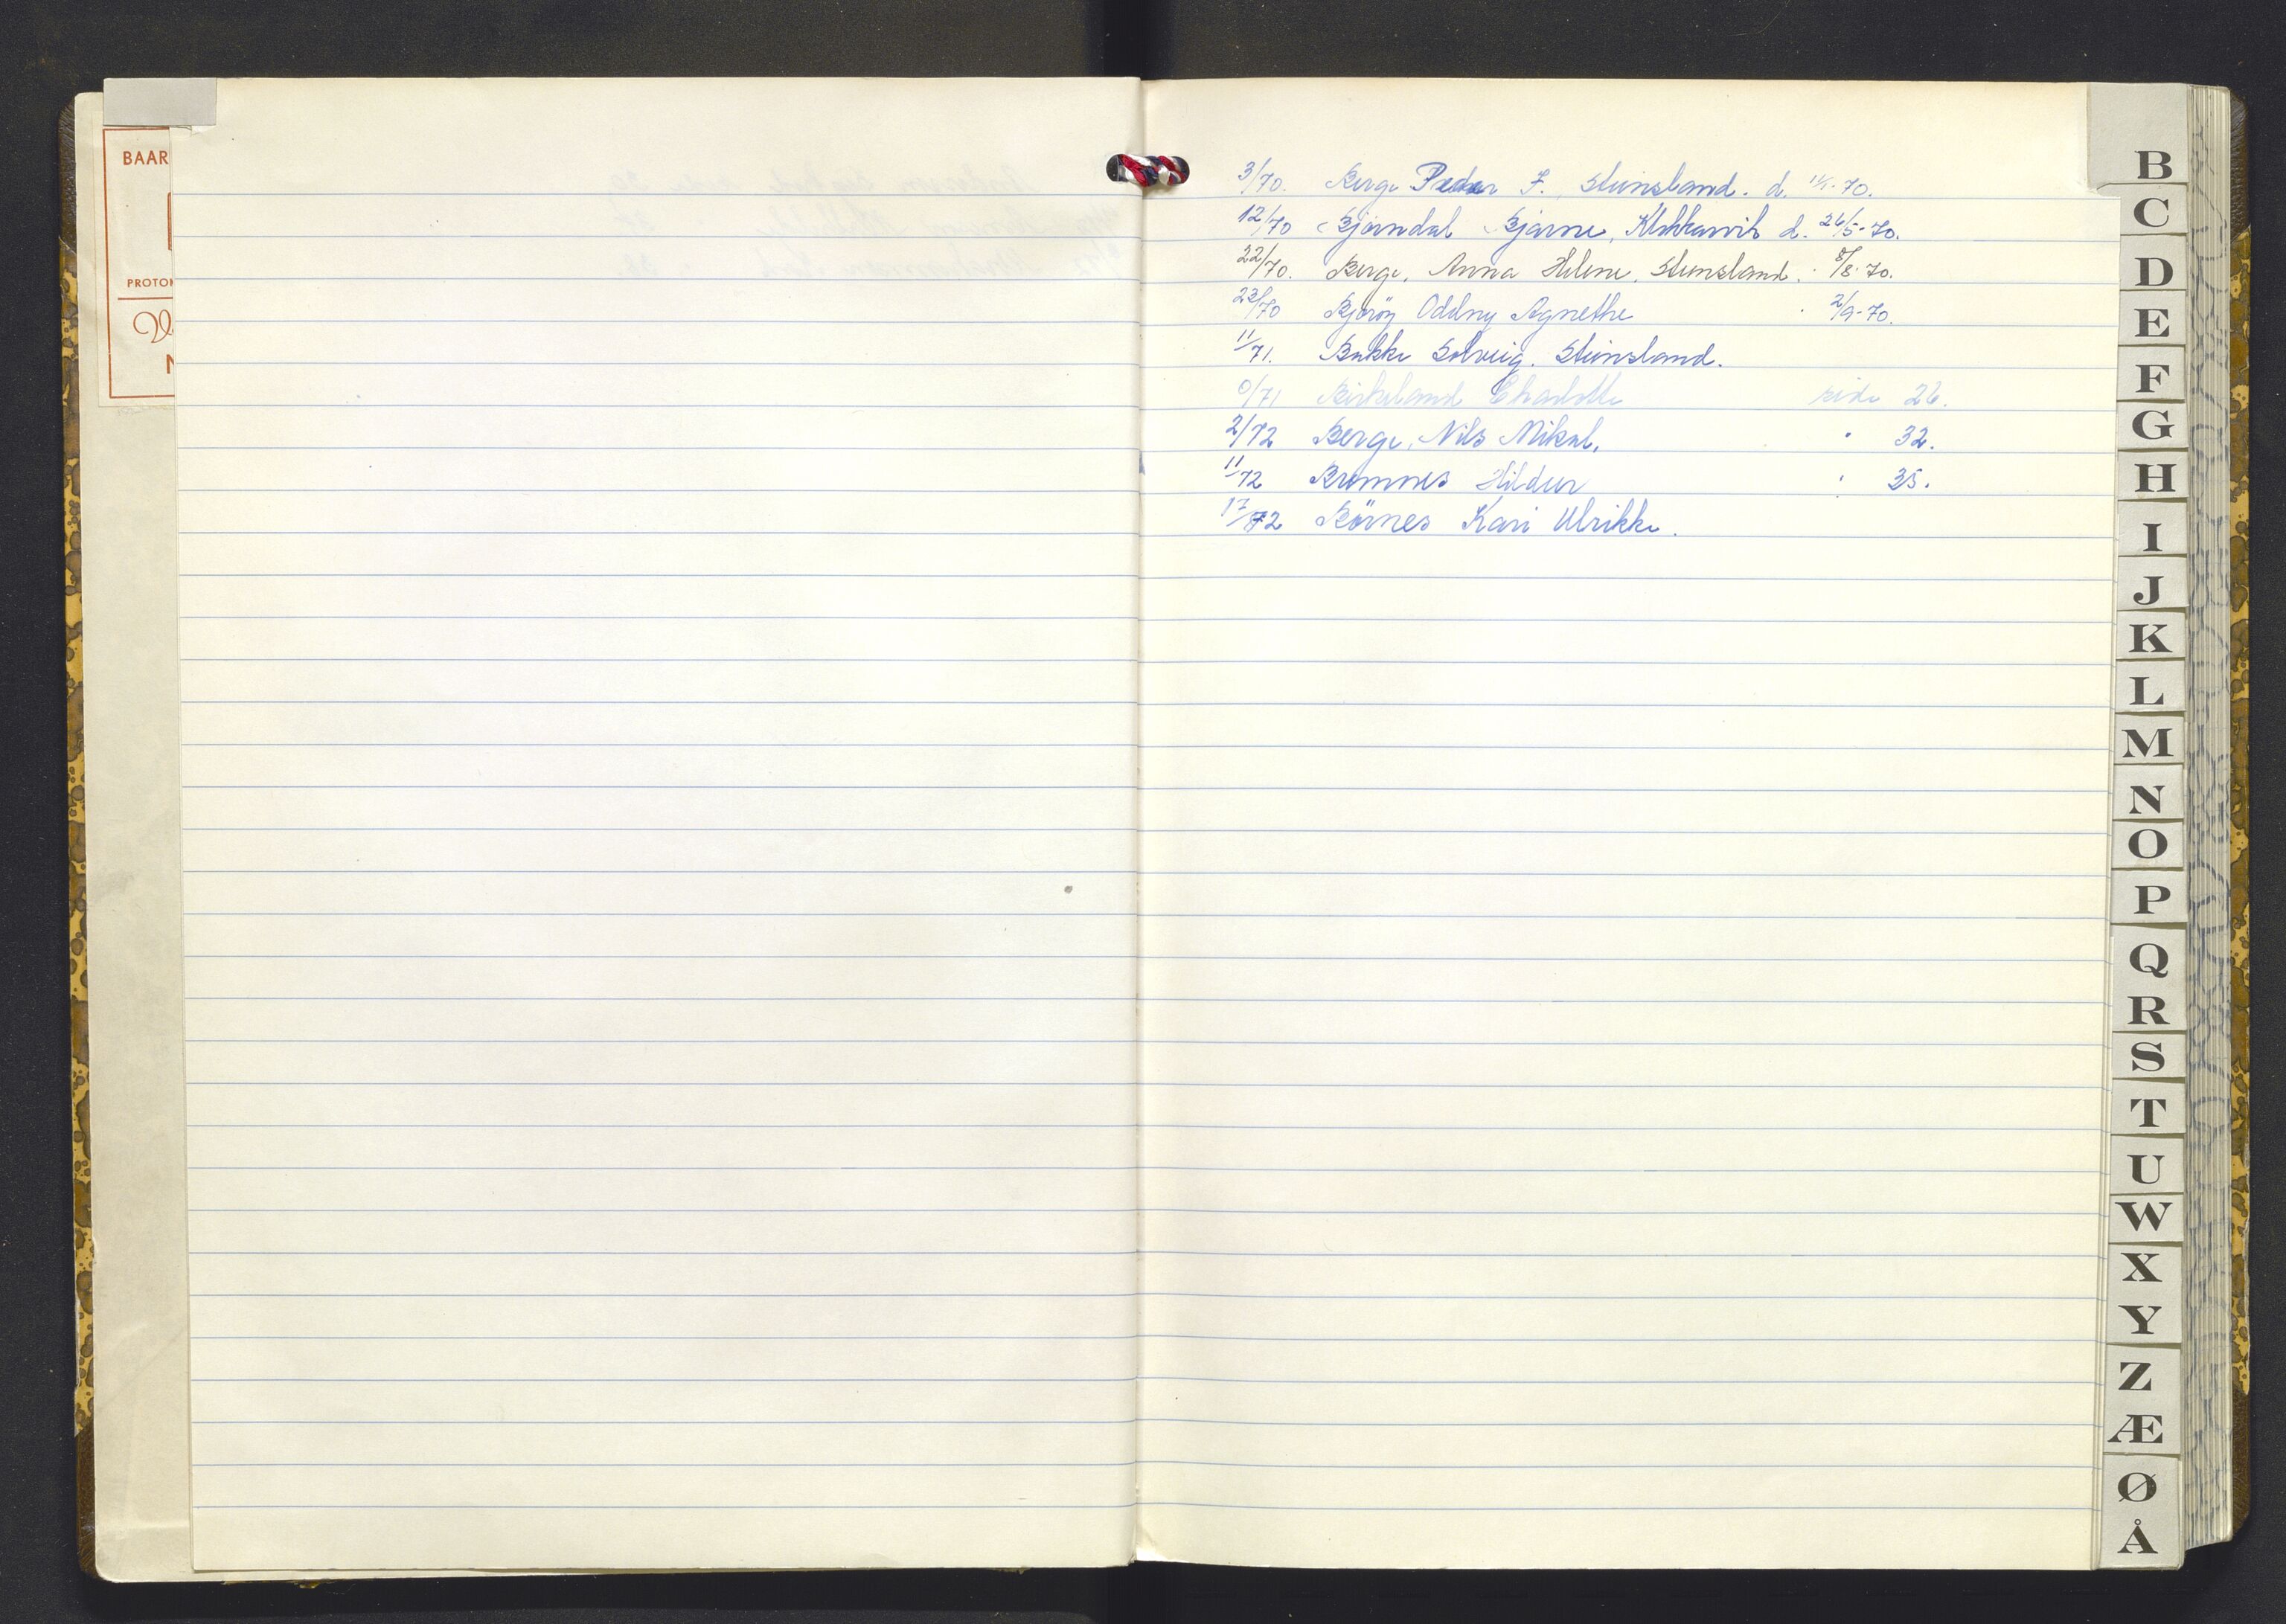 BAAR
PROTO
3/70. Berge Peder F., Steinsland. d. 11/1-70.
12/70 Bjørndal Bjarne, Klokkarvik d. 26/5-70.
22/70. Berge, Anna Helene, Steinsland. " 8/8-70.
23/70 Bjørøy Oddny Agnethe " 2/9-70.
11/71. Bakke Solveig. Steinsland.
0/71 Birkeland Charlotte side 26.
2/72 Berge, Nils Mikal. " 32.
11/72 Bremnes Hildur " 35.
17/72 Børnes Kari Ulrikke.
B
C
D
E
F
G
H
I
J
K
L
M
N
O
P
Q
R
S
T
U
W
X
Y
Z
Æ
Ø
Å